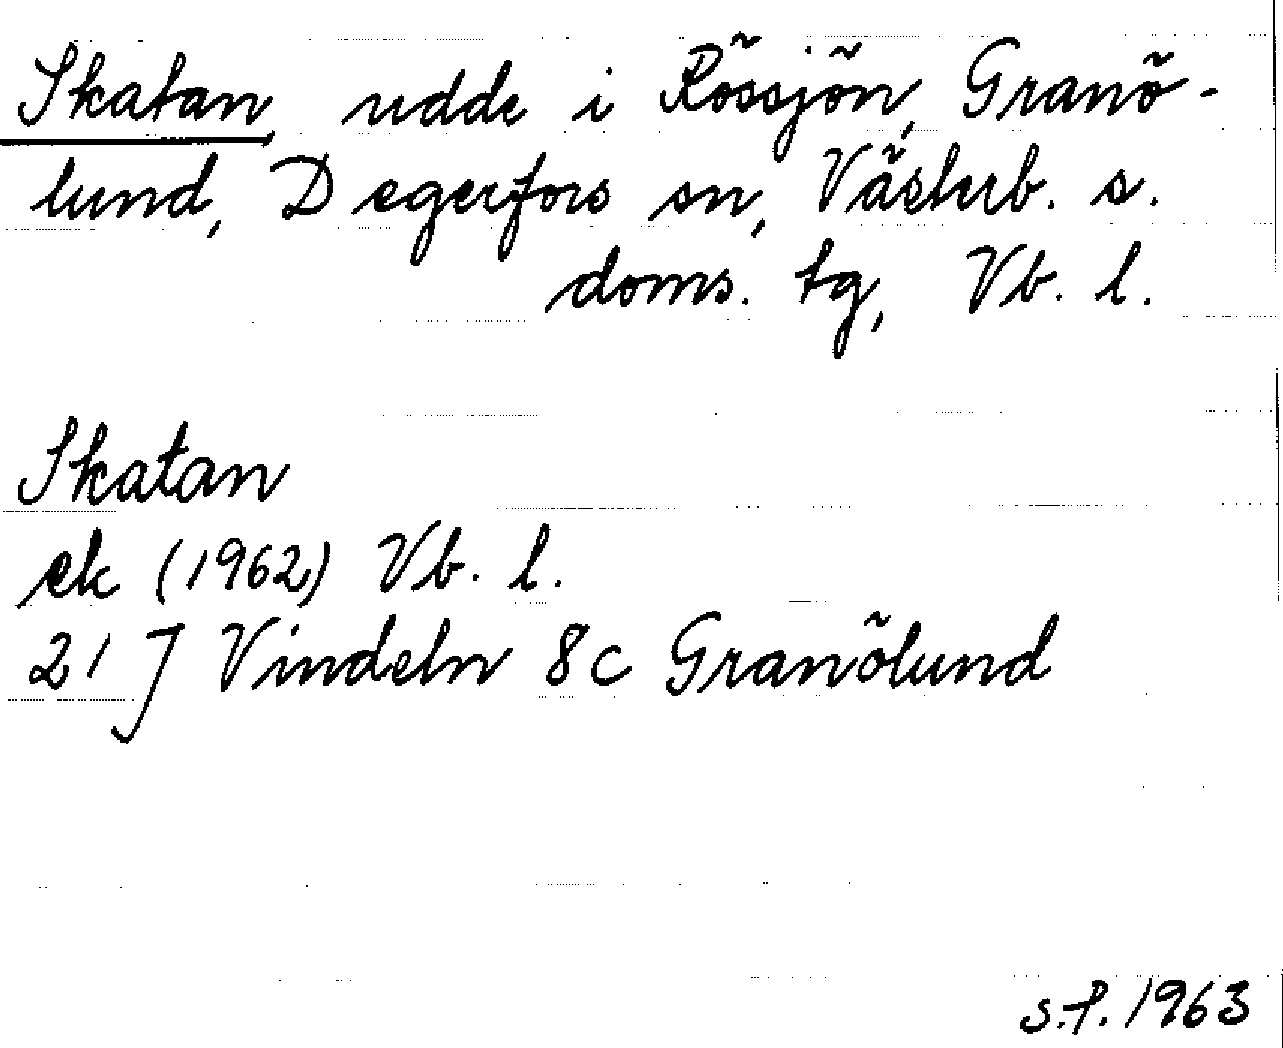 Skatan, udde i Rössjön, Granö-
lund, Degerfors sn, Västerb. s.
doms. tg, Vb. l.
Skatan
ek (1962) Vb. l.
21 J Vindeln 8c Granölund
s.f. 1963